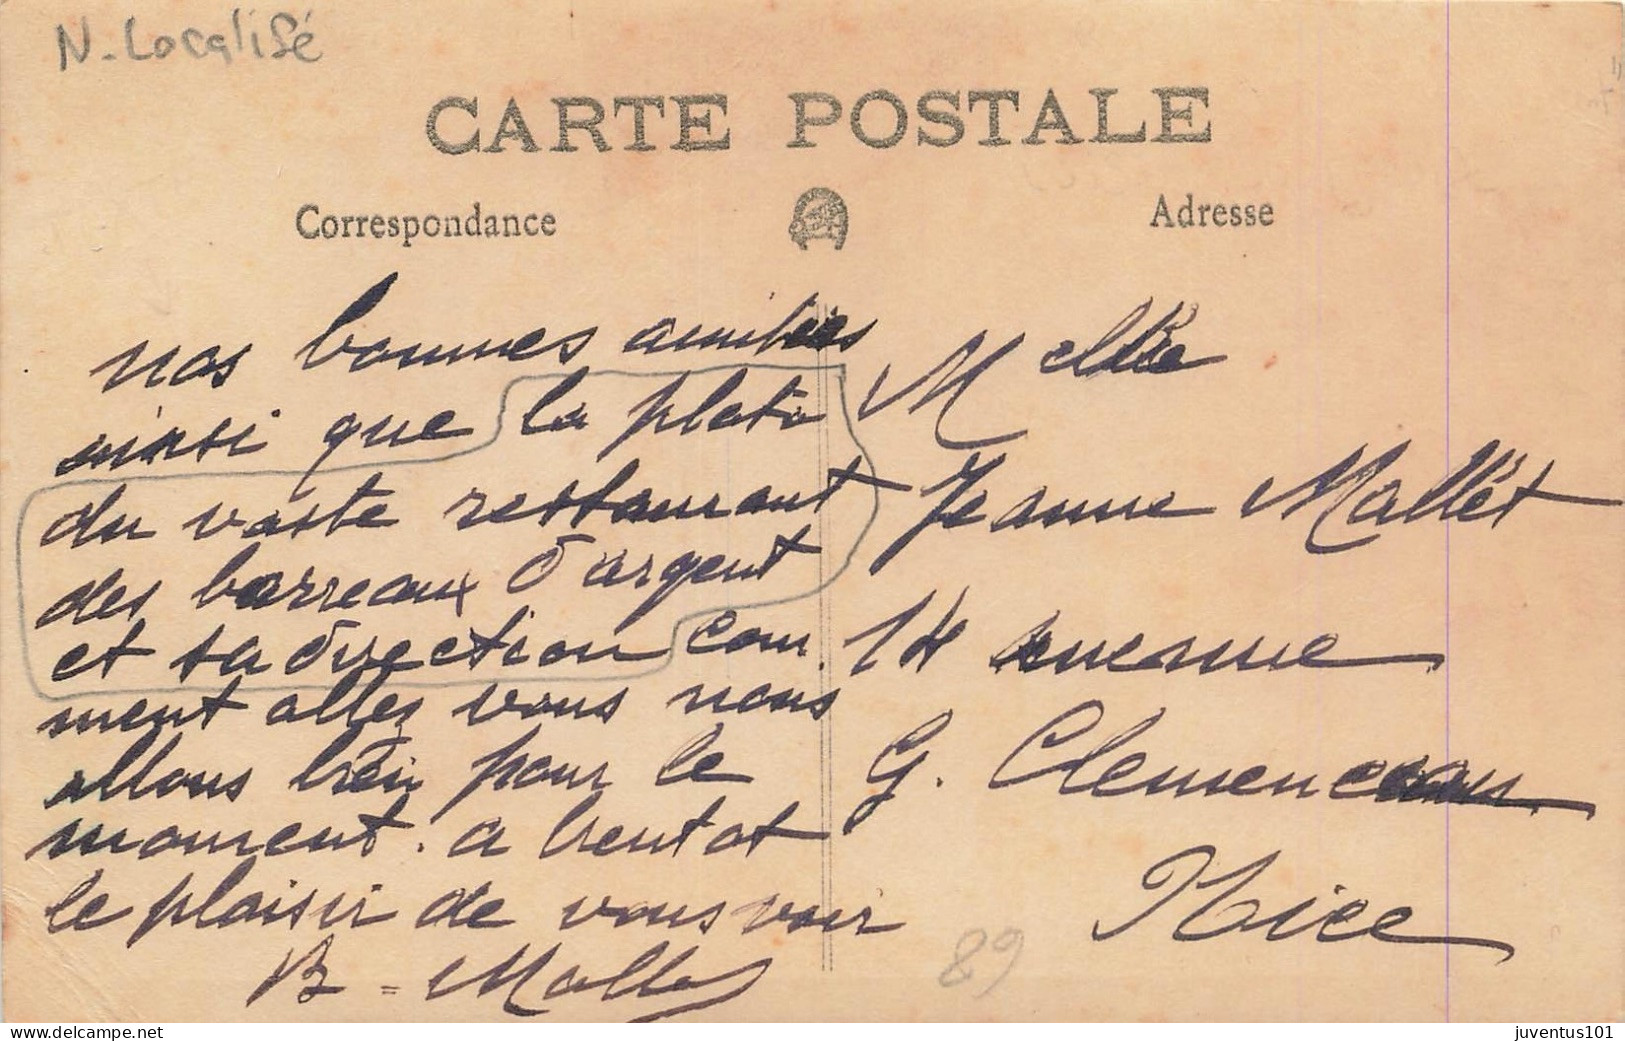 N. Localisé
CARTE POSTALE
Correspondance
Adresse
nos bonnes amitiées
ainsi que la plato
du vaste restaurant
des barreaux d'argent
et sa direction com.
ment allez vous nous
allons bien pour le
moment. a bentot
le plaisir de vous voir
B = Mallet
Melle
Jeanne Mallet
14 avenue
G. Clemenceau.
Nice
89
juventus101